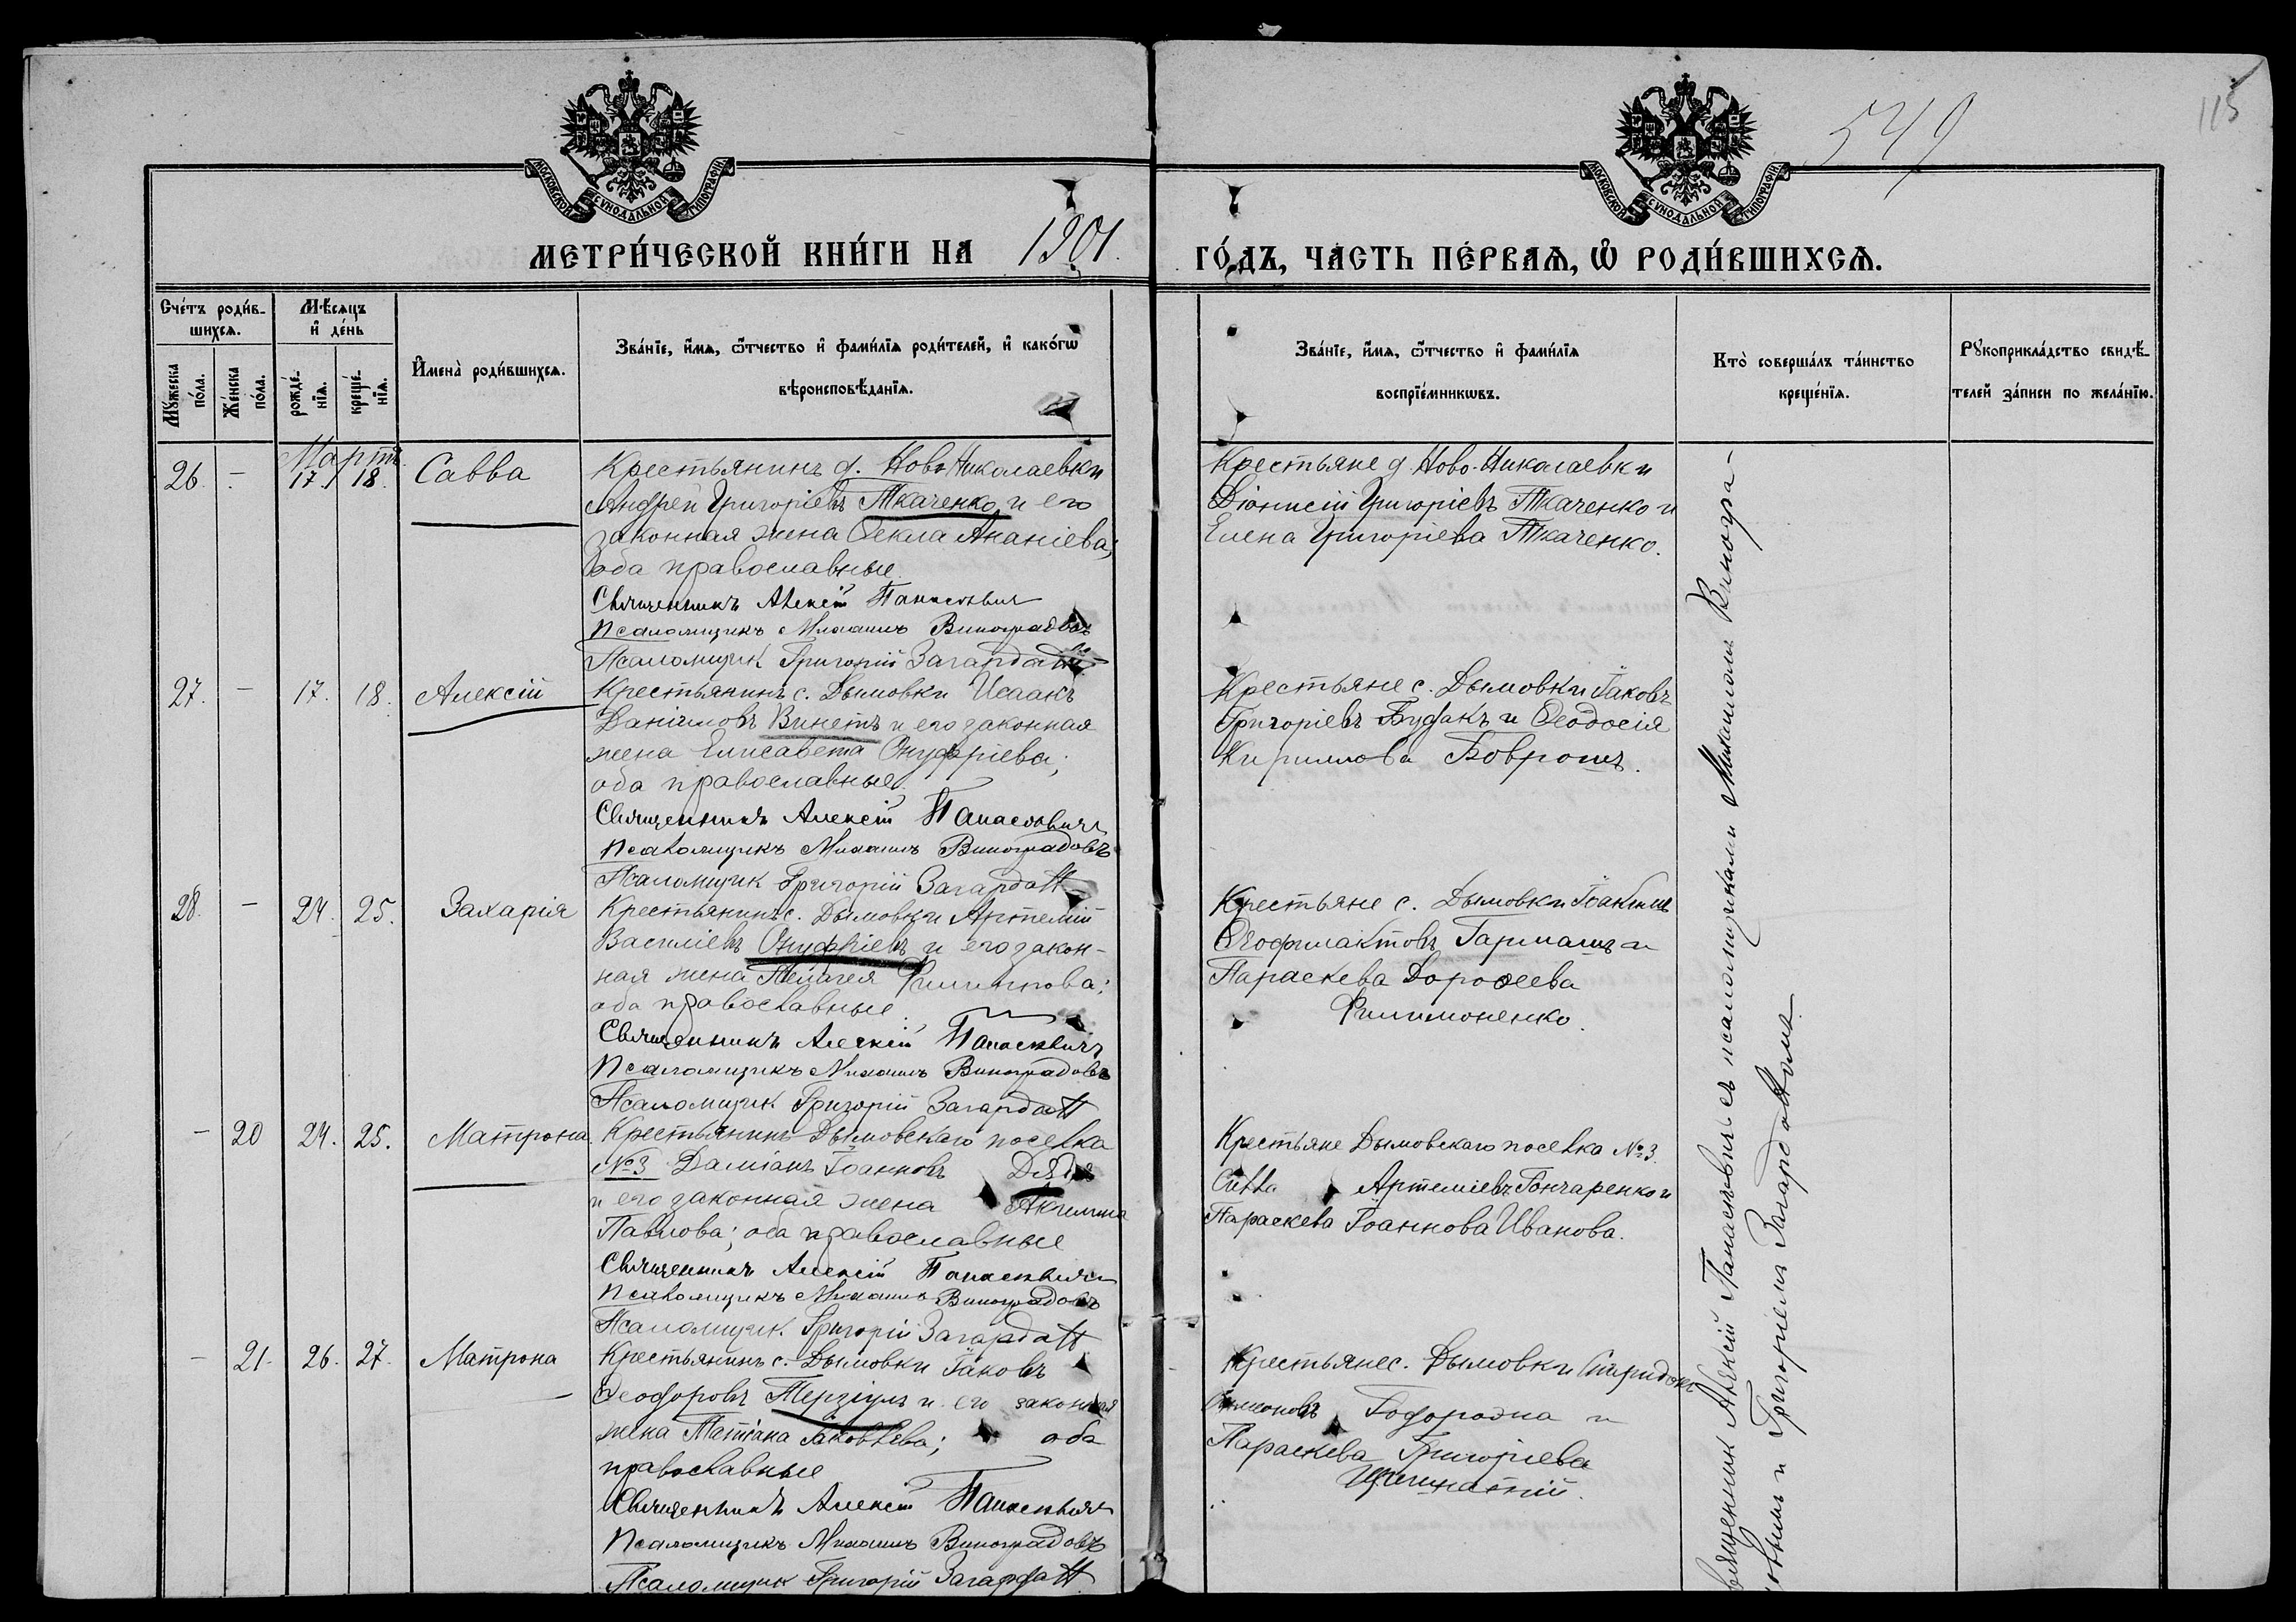 549
115
МОСКОВСКОЙ СѴНОДАЛЬНОЙ ТИПОГРАФІИ
МОСКОВСКОЙ СѴНОДАЛЬНОЙ ТИПОГРАФІИ
МЕТРИ́ЧЕСКОЙ КНИ́ГИ НА 1901 ГО́ДЪ, ЧА́СТЬ ПЕ́РВАѦ, Ѡ҆ РОДИ́ВШИХСѦ.
Сче́тъ роди́в-
шихсѧ.
Мꙋ́жеска по́ла.
Же́нска по́ла.
Мѣ́сѧцъ
и҆ де́нь
рожде́-
нїѧ.
креще́-
нїѧ.
И҆мена̀ роди́вшихсѧ.
Зва́нїе, и҆́мѧ, ѻ҆́тчество и҆ фами́лїѧ роди́телей, и҆ како́гѡ
вѣроисповѣ́данїѧ.
Зва́нїе, и҆́мѧ, ѻ҆́тчество и҆ фами́лїѧ
воспрїе́мникѡвъ.
Кто̀ соверша́лъ та́инство
креще́нїѧ.
Рꙋкоприкла́дство свидѣ́-
телей за́писи по жела́нїю.
Мартъ
26. - 17. 18. Савва
Крестьянинъ д. Ново-Николаевки
Андрей Григоріевъ Ткаченко и его
законная жена Ѳекла Ананіева;
оба православные.
Священникъ Алексій Панасевичъ
Псаломщикъ Михаилъ Виноградовъ
Псаломщик Григорій Загардо
Крестьяне д. Ново-Николаевки
Діонисій Григоріевъ Ткаченко и
Елена Григоріева Ткаченко.
27. - 17. 18. Алексій
Крестьянинъ с. Дымовки Исаакъ
Даніиловъ Винетъ и его законная
жена Елисавета Онуфріева;
оба православные.
Священникъ Алексій Панасевичъ
Псаломщикъ Михаилъ Виноградовъ
Псаломщик Григорій
Крестьяне с. Дымовки Іаковъ
Григоріевъ Будакъ и Ѳеодосія
Кириллова Бовронъ.
28. - 24. 25. Захарія
Крестьянинъ с. Дымовки Артемій
Василіевъ Онуфріевъ и его закон-
ная жена Пелагея Филиппова;
оба православные.
Священникъ Алексій Панасевичъ
Псаломщикъ Михаилъ Виноградовъ
Псаломщик Григорій
Крестьяне с. Дымовки Іоакимъ
Ѳеофилактовъ Гармашъ и
Параскева Дороѳеева
Филимоненко.
- 20 24. 25. Матрона
Крестьянинъ Дымовскаго поселка
№3 Даміанъ Іоанновъ Дядя
и его законная жена Акилина
Павлова; оба православные
Священникъ Алексій Панасевичъ
Псаломщикъ Михаилъ Виноградовъ
Псаломщик Григорій
Крестьяне Дымовскаго поселка №3.
Савва Артеміевъ Гончаренко и
Параскева Іоаннова Иванова.
- 21. 26. 27. Матрона
Крестьянинъ с. Дымовки Іаковъ
Ѳеодоровъ Терзіулъ и его законная
жена Татіана Іаковлева; оба
православные
Священникъ Алексій Панасевичъ
Псаломщикъ Михаилъ Виноградовъ
Псаломщик Григорій
Крестьяне с. Дымовки Спиридонъ
Симеоновъ и
Параскева Григоріева
Священник Алексій Панасевичъ съ псаломщиками Михаиломъ Виногра-
довымъ и Григоріемъ